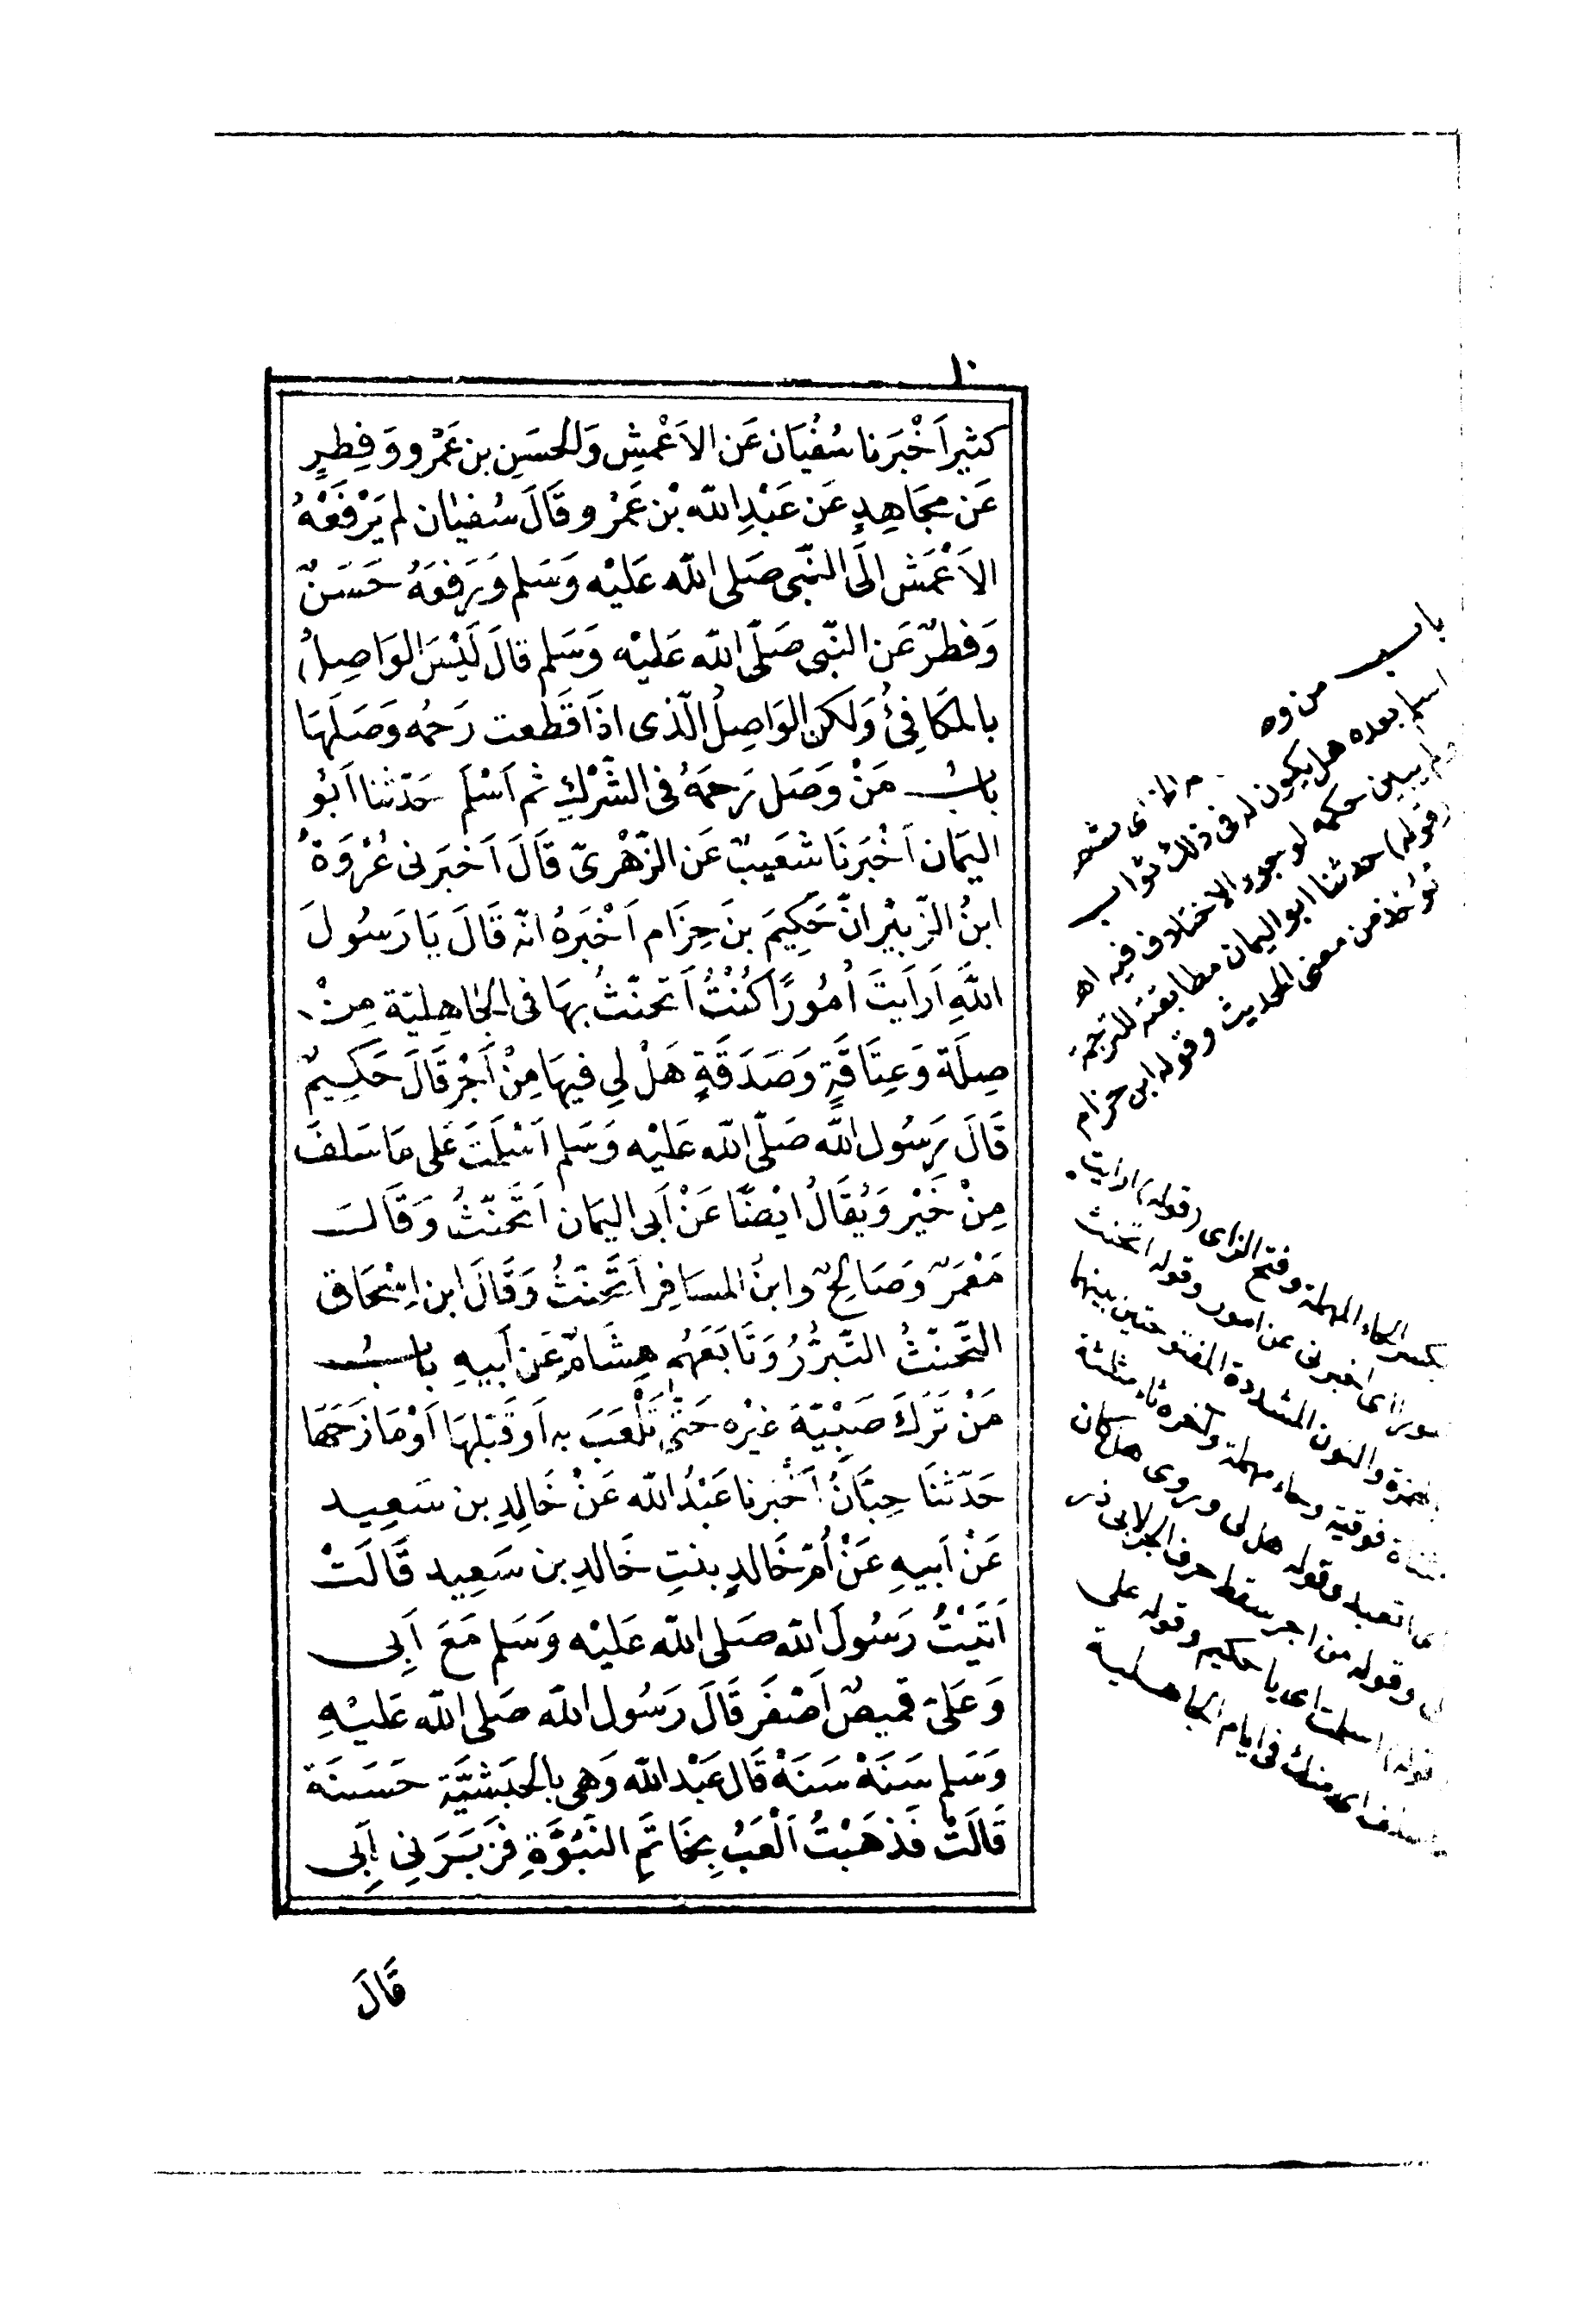 ١٠
كثير اَخْبَرنا سُفْيَان عَن الاَعْمشِ وَالحسَنِ بن عَمْرو وَفِطرٍ
عَن مجَاهِدٍ عَن عَبْدِ الله بْن عَمْرو قَالَ سُفيان لم يَرْفَعْهُ
الاَعْمَش الَى النّبى صَلى الله عَليْه وَسَلم وَرَفعَهُ حَسَنٌ
وَفطرٌ عَن النّبى صَلّى الله عَليْه وَسَلم قالَ لَيْسَ الوَاصِلُ
بالمكَافِئُ وَلكن الوَاصِلُ الّذى اذَا قَطَعت رَحمُه وَصَلَهَا
بابُ مَنْ وَصَل رَحمَهُ فى الشّرْكِ ثم اَسْلَم حَدّثنا اَبُو
اليَمان اَخْبَرنَا شعَيبٌ عَن الزّهْرىّ قَالَ اَخبَرنى عُرْوَةُ
ابنُ الزّبيْر انّ حَكِيمَ بنَ حِزَام اَخْبَرهُ انّه قَالَ يَا رَسُولَ
اللهِ اَرَاَيتَ اُمُورًا كُنْتُ اَتحنّثُ بهَا فى الجَاهِليّة مِنْ
صِلَة وَعِتَاقَةٍ وَصَدَقَةٍ هَلْ لِى فيهَا مِنْ اَجْر قَالَ حَكِيمٌ
قَالَ رَسُول الله صَلّى الله عَليْه وَسَلم اَسْلَمتَ عَلى مَا سَلفَ
مِنْ خَيْر وَيُقَالُ ايْضًا عَنْ اَبى اليَمان اَتَحنّثُ وَقَالَ
مَعْمَرٌ وَصَالحٌ وابنُ المسَافِر اَتَحَنّثُ وَقَالَ ابن اِسْحَاق
التَّحَنّثُ التَّبَرُّرُ وَتَابَعَهُم هِشَامٌ عَن اَبيهِ بابُ
مَنْ تَرَكَ صَبْيّةَ غيْره حَتّى تَلْعَبَ به اَو قَبّلهَا اَوْ مَازَحَهَا
حَدّثنَا حِبّانُ اَخْبَرنا عَبْدُ الله عَنْ خَالِدِ بن سَعِيد
عَنْ اَبيهِ عَنْ اُمّ خَالدٍ بنتِ خَالدِ بن سَعِيد قَالَتْ
اَتَيْتُ رَسُولَ الله صَلى الله عَليْه وَسَلم مَعَ اَبِى
وَعَلىّ قميصٌ اَصْفَرَ قَالَ رَسُول الله صَلى الله عَليْهِ
وَسَلم سَنَهْ سَنَهْ قَال عَبْد الله وَهى بالحبَشيَّة حَسَنَة
قَالَتْ فَذهَبْتُ اَلْعَبُ بِخَاتَمِ النبُوّةِ فزَبَرَنِى اَبِى
قَالَ
باب من وصل
اسلم بعده هل يكون له فى ذلك ثواب
ولم يبين حكمه لوجود الاختلاف فيه اهـ
(قوله) حدثنا ابو اليمان مطابقته للترجمة
تؤخذ من معنى الحديث وقوله ابن حزام
بكسر الحاء المهملة وفتح الزاى (قوله) ارايت
امورا اى اخبرنى عن امور وقوله اتحنث
بالهمزة والنون المشددة المفتوحتين بينهما
مثناة فوقية وحاء مهملة واخره ثاء مثلثة
اى اتعبد وقوله هل لى وروى هل كان
لى وقوله من اجر سقط حرف الجر لابى ذر
(قوله) اسلمت اى يا حكيم وقوله على
ما سلف اى منك فى ايام الجاهلية